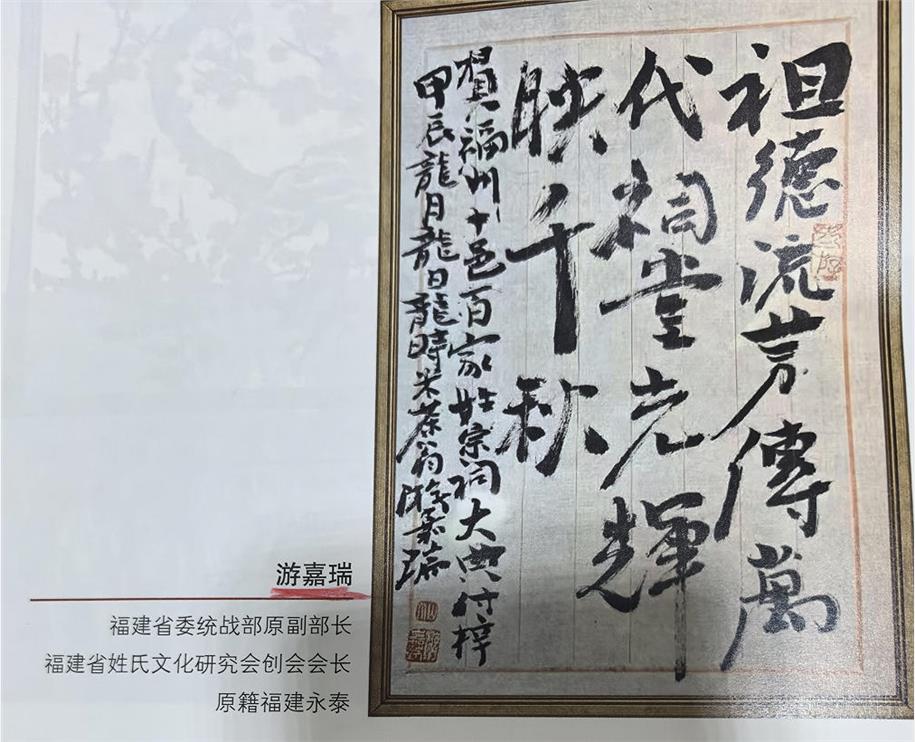 祖德流芳傳萬
代祠堂光輝
映千秋
賀福州十邑百家姓宗祠大典付梓
甲辰龍月龍日龍時米茶翁游嘉瑞
游嘉瑞
福建省委统战部原副部长
福建省姓氏文化研究会创会会长
原籍福建永泰